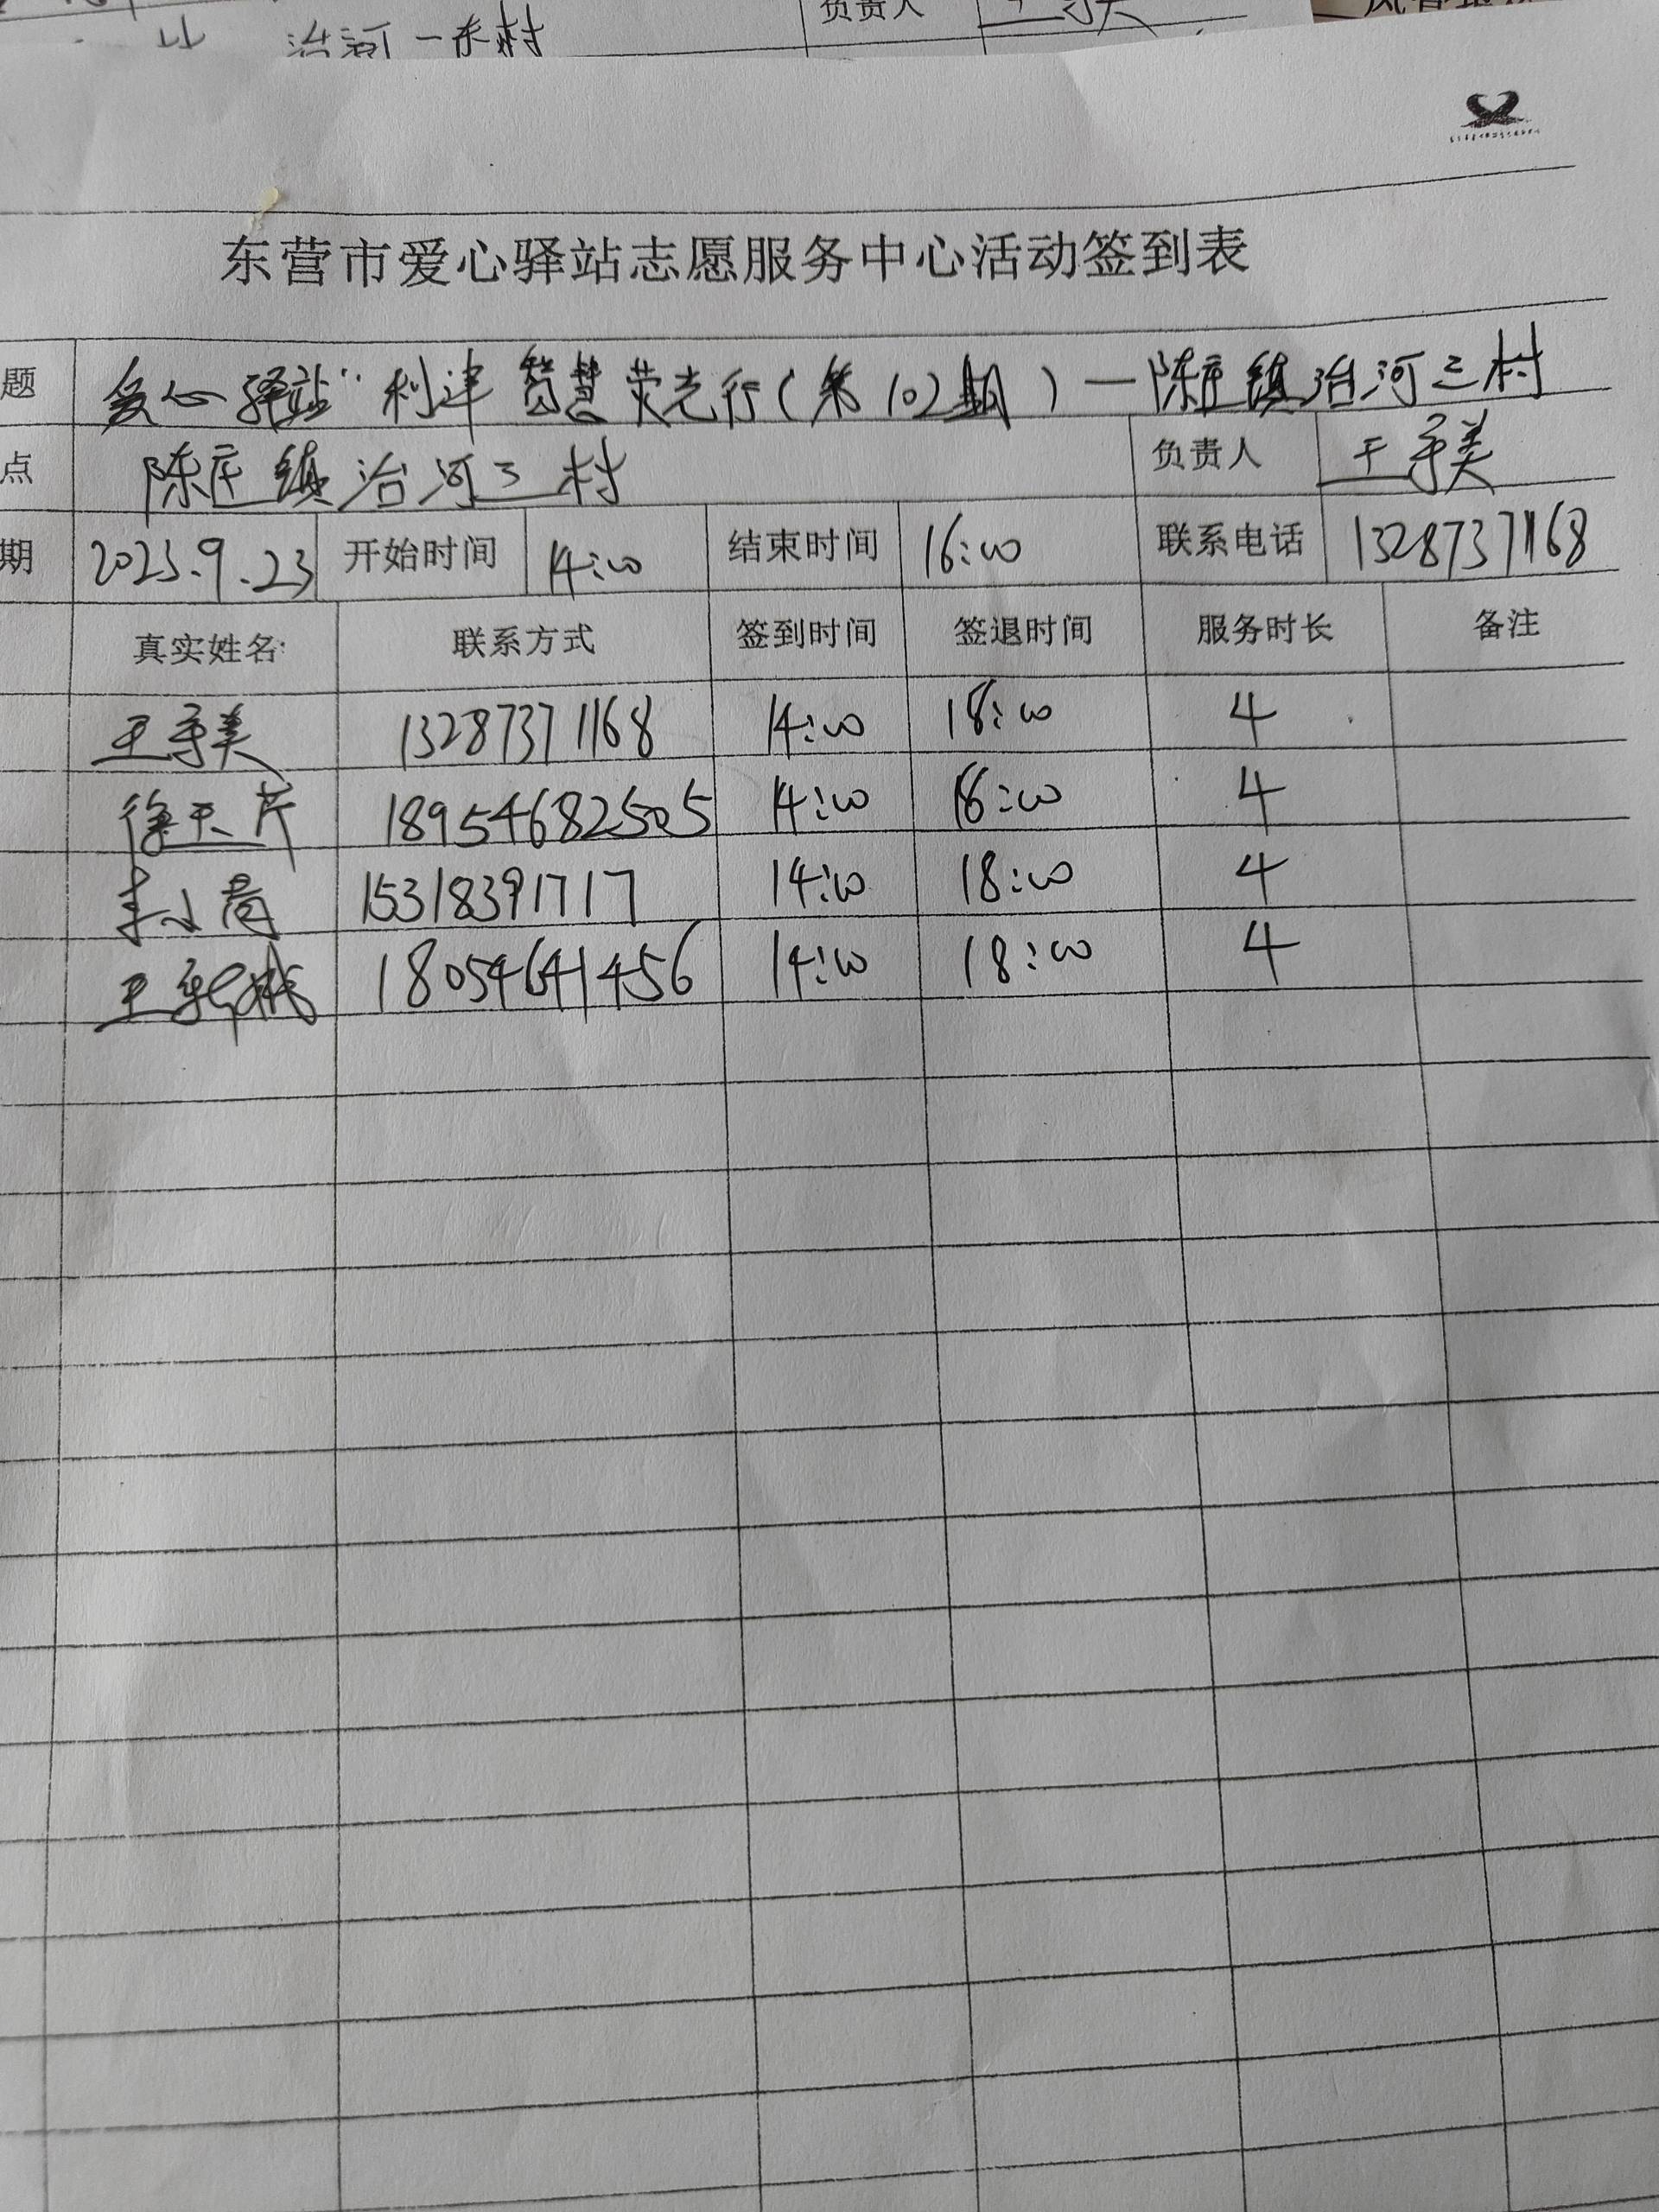 负责人
治河一东村
东营市爱心驿站志愿服务中心活动签到表
题 爱心驿站"利津智慧荧光行(第102期)—陈庄镇治河三村
点 陈庄镇治河三村 负责人 王守美
期 2023.9.23 开始时间 14:00 结束时间 16:00 联系电话 13287371168
真实姓名 联系方式 签到时间 签退时间 服务时长 备注
王守美 13287371168 14:00 18:00 4
徐天芹 18954682505 14:00 18:00 4
李小荷 15318391717 14:00 18:00 4
王 18054641456 14:00 18:00 4